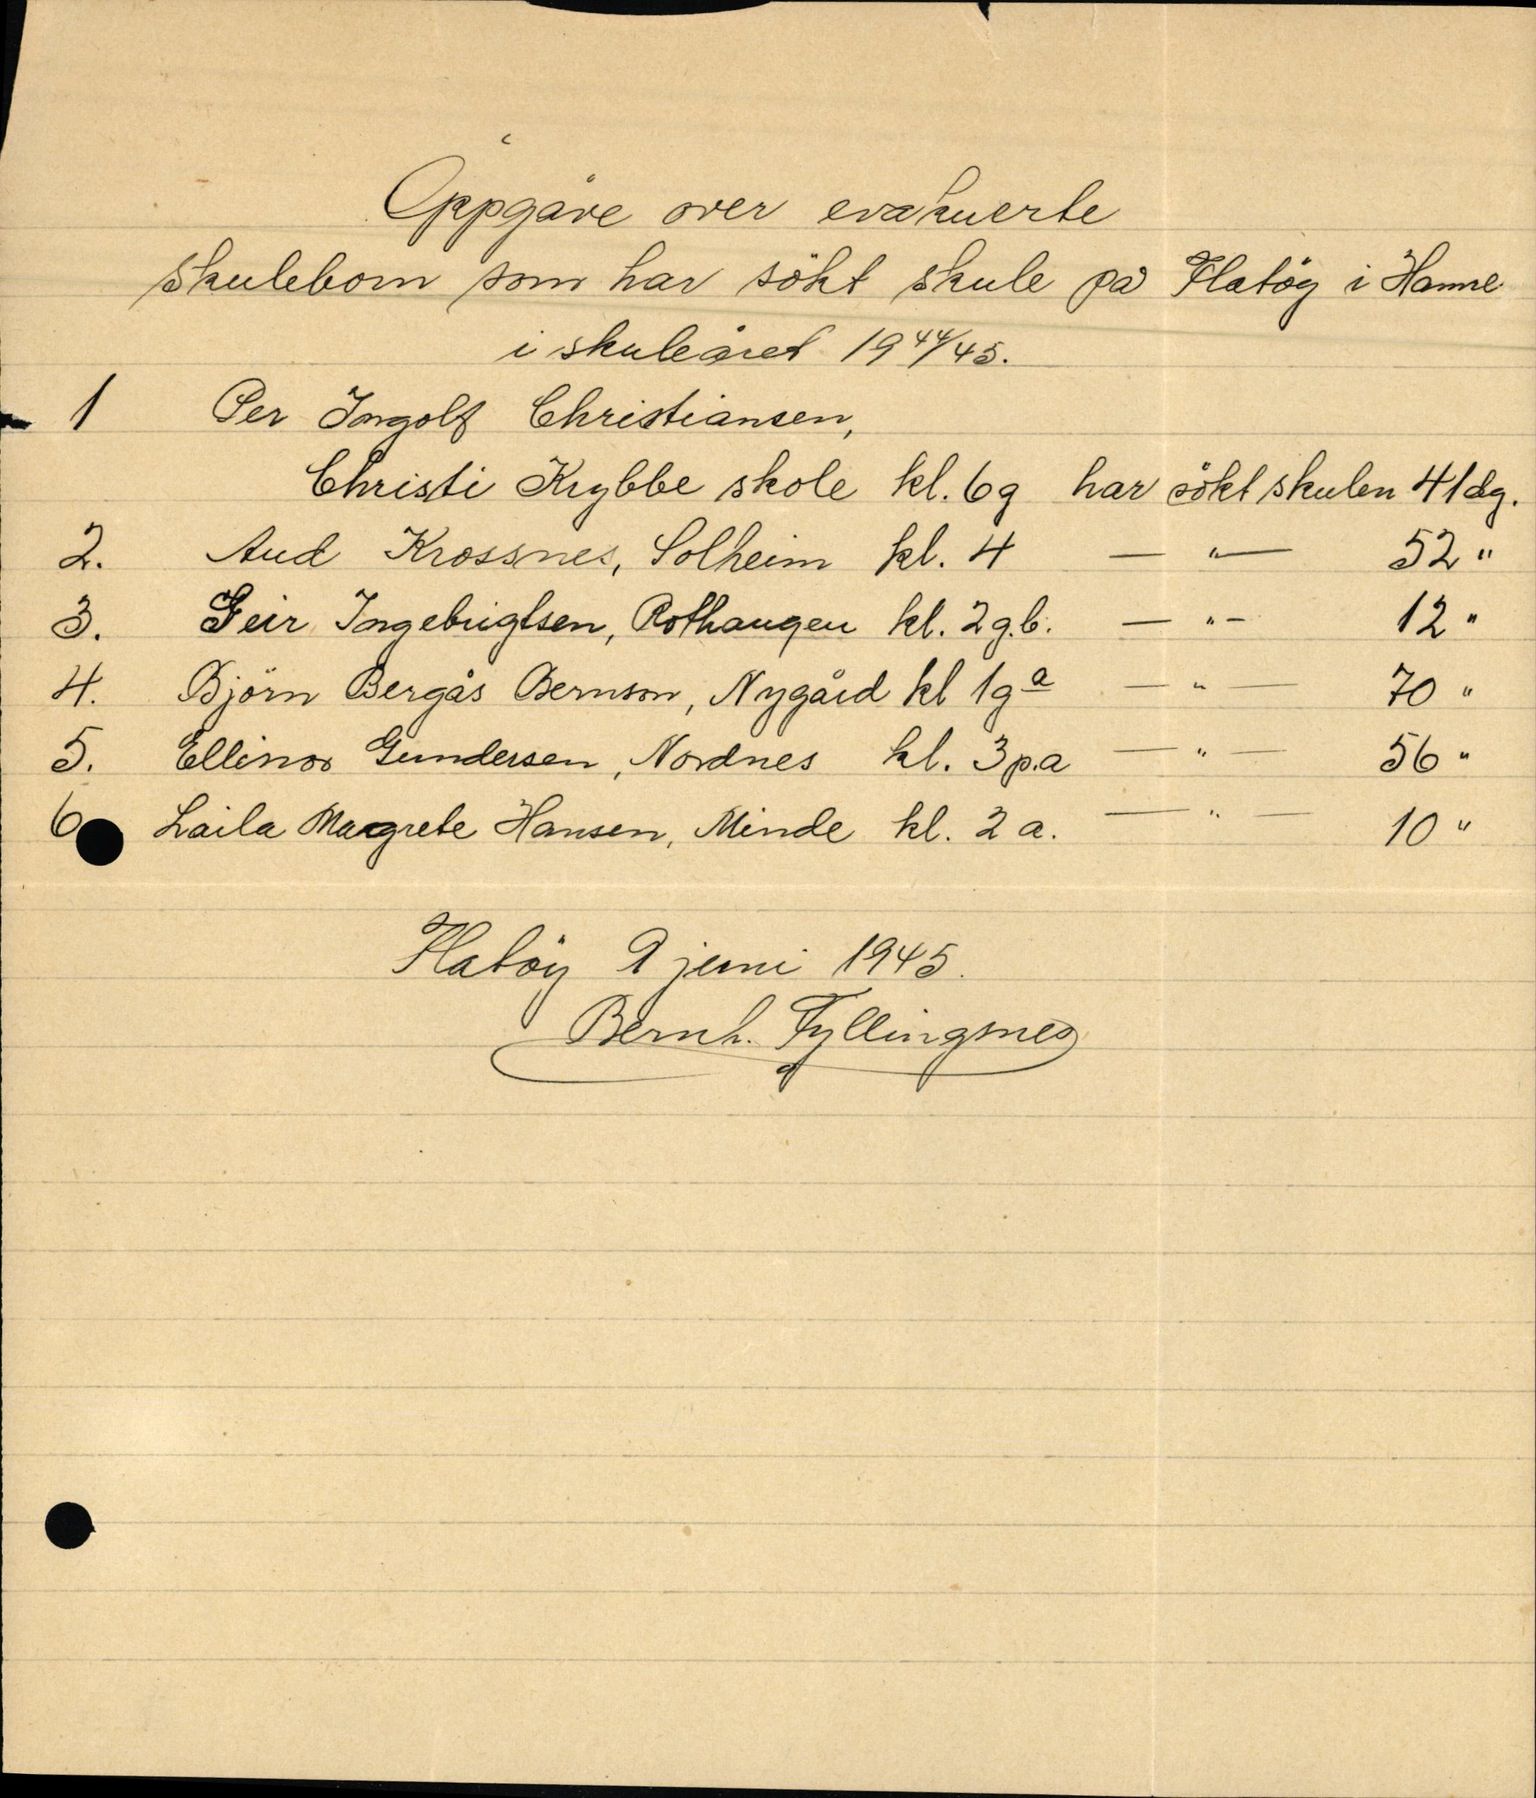 Oppgåve over evakuerte
skuleborn som har sökt skule på Flatöy i Hamre
i skuleåret 19 44/45.
1 Per Ingolf Christiansen,
Christi Krybbe skole kl. 6g har sökt skulen 41 dg.
2. Aud Krossnes, Solheim kl. 4 — " — 52 "
3. Geir Ingebrigtsen, Rothaugen kl. 2 g.b. — " — 12 "
4. Björn Bergås Bernson, Nygård kl 1g a — " — 70 "
5. Ellinor Gundersen, Nordnes kl. 3 p.a — " — 56 "
6 Laila Magrete Hansen, Minde kl. 2 a. — " — 10 "
Flatöy 9 juni 1945.
Bernh. Fyllingsnes